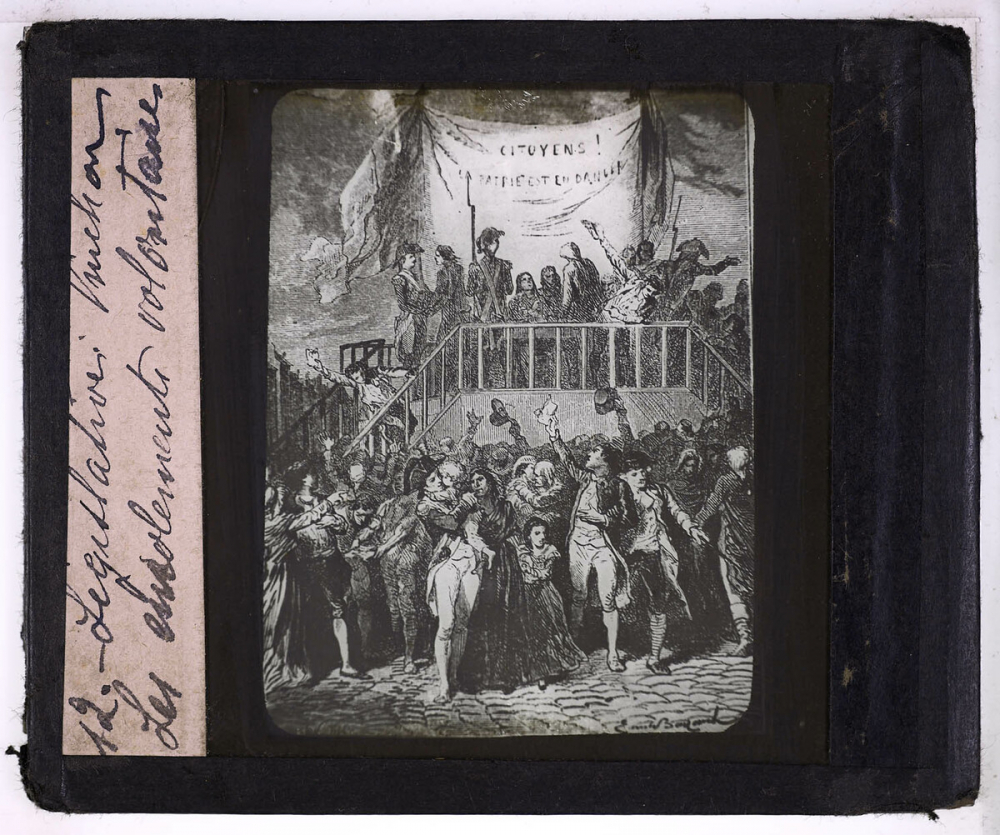 12. - Législative: Vinchon
Les enrolements volontaires
CITOYENS !
LA PATRIE EST EN DANGER